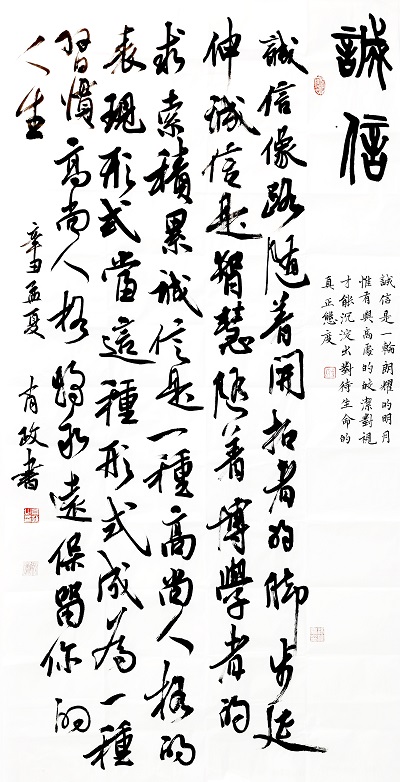 誠信
誠信是一輪朗耀的明月
惟有與高處的皎潔對視
才能沉淀出對待生命的
真正態度
誠信像路隨着開拓者的脚步延
伸誠信是智慧隨着博學者的
求索積累誠信是一種高尚人格的
表現形式當這種形式成為一種
習慣高尚人格將永遠保留你的
人生
辛丑孟夏 政書